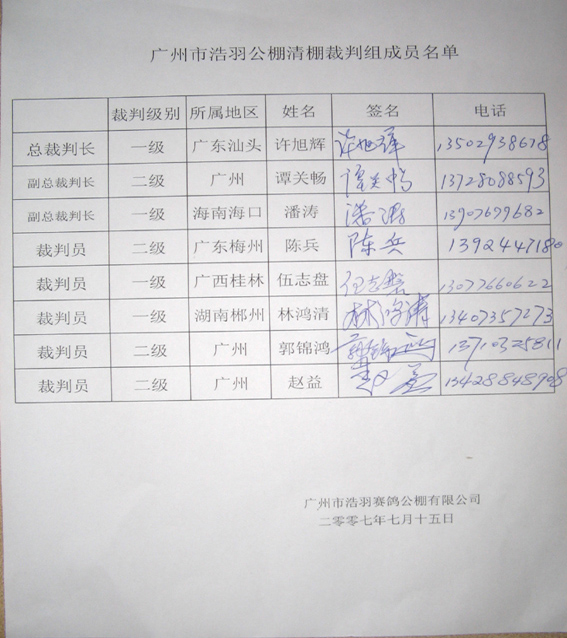 广州市浩羽公棚清棚裁判组成员名单
裁判级别 所属地区 姓名 签名 电话
总裁判长 一级 广东汕头 许旭辉 许旭辉 13502938678
副总裁判长 二级 广州 谭关畅 谭关畅 13728088593
副总裁判长 一级 海南海口 潘涛 潘涛 13907679682
裁判员 二级 广东梅州 陈兵 陈兵 13924447180
裁判员 一级 广西桂林 伍志盘 伍志盘 13077660622
裁判员 一级 湖南郴州 林鸿清 林鸿清 13407357273
裁判员 二级 广州 郭锦鸿 郭锦鸿 13710325811
裁判员 二级 广州 赵益 赵益 13428848908
广州市浩羽赛鸽公棚有限公司
二零零七年七月十五日